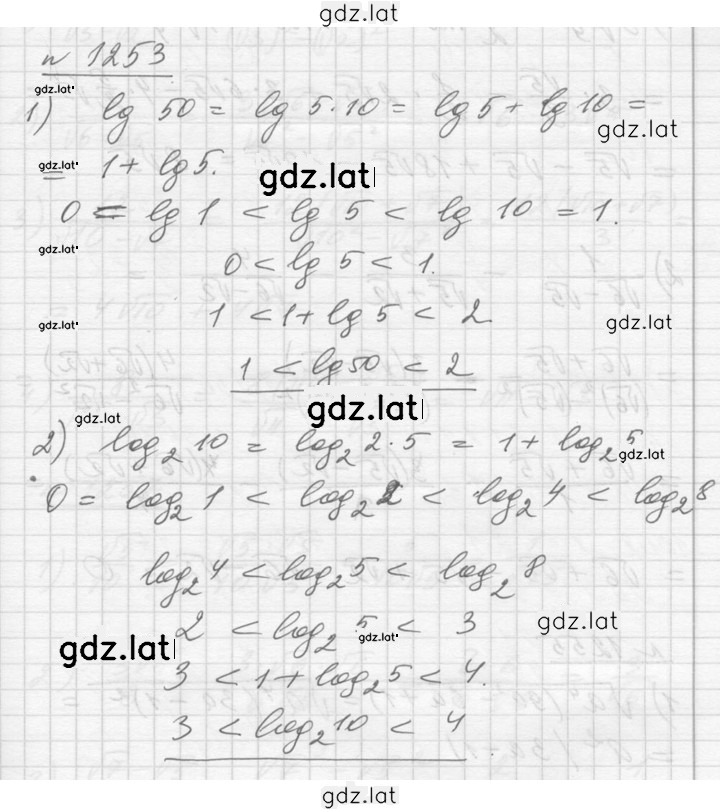 gdz.lat
n 1253
gdz.lat
1) lg 50 = lg 5·10 = lg 5 + lg 10 =
gdz.lat
gdz.lat
= 1 + lg 5.
gdz.lat
0 = lg 1 < lg 5 < lg 10 = 1.
gdz.lat
0 < lg 5 < 1.
gdz.lat
1 < 1 + lg 5 < 2
gdz.lat
1 < lg 50 < 2
gdz.lat
gdz.lat
2) log₂ 10 = log₂ 2·5 = 1 + log₂ 5
gdz.lat
0 = log₂ 1 < log₂ 2 < log₂ 4 < log₂ 8
log₂ 4 < log₂ 5 < log₂ 8
2 < log₂ 5 < 3
gdz.lat
gdz.lat
gdz.lat
3 < 1 + log₂ 5 < 4.
3 < log₂ 10 < 4
gdz.lat